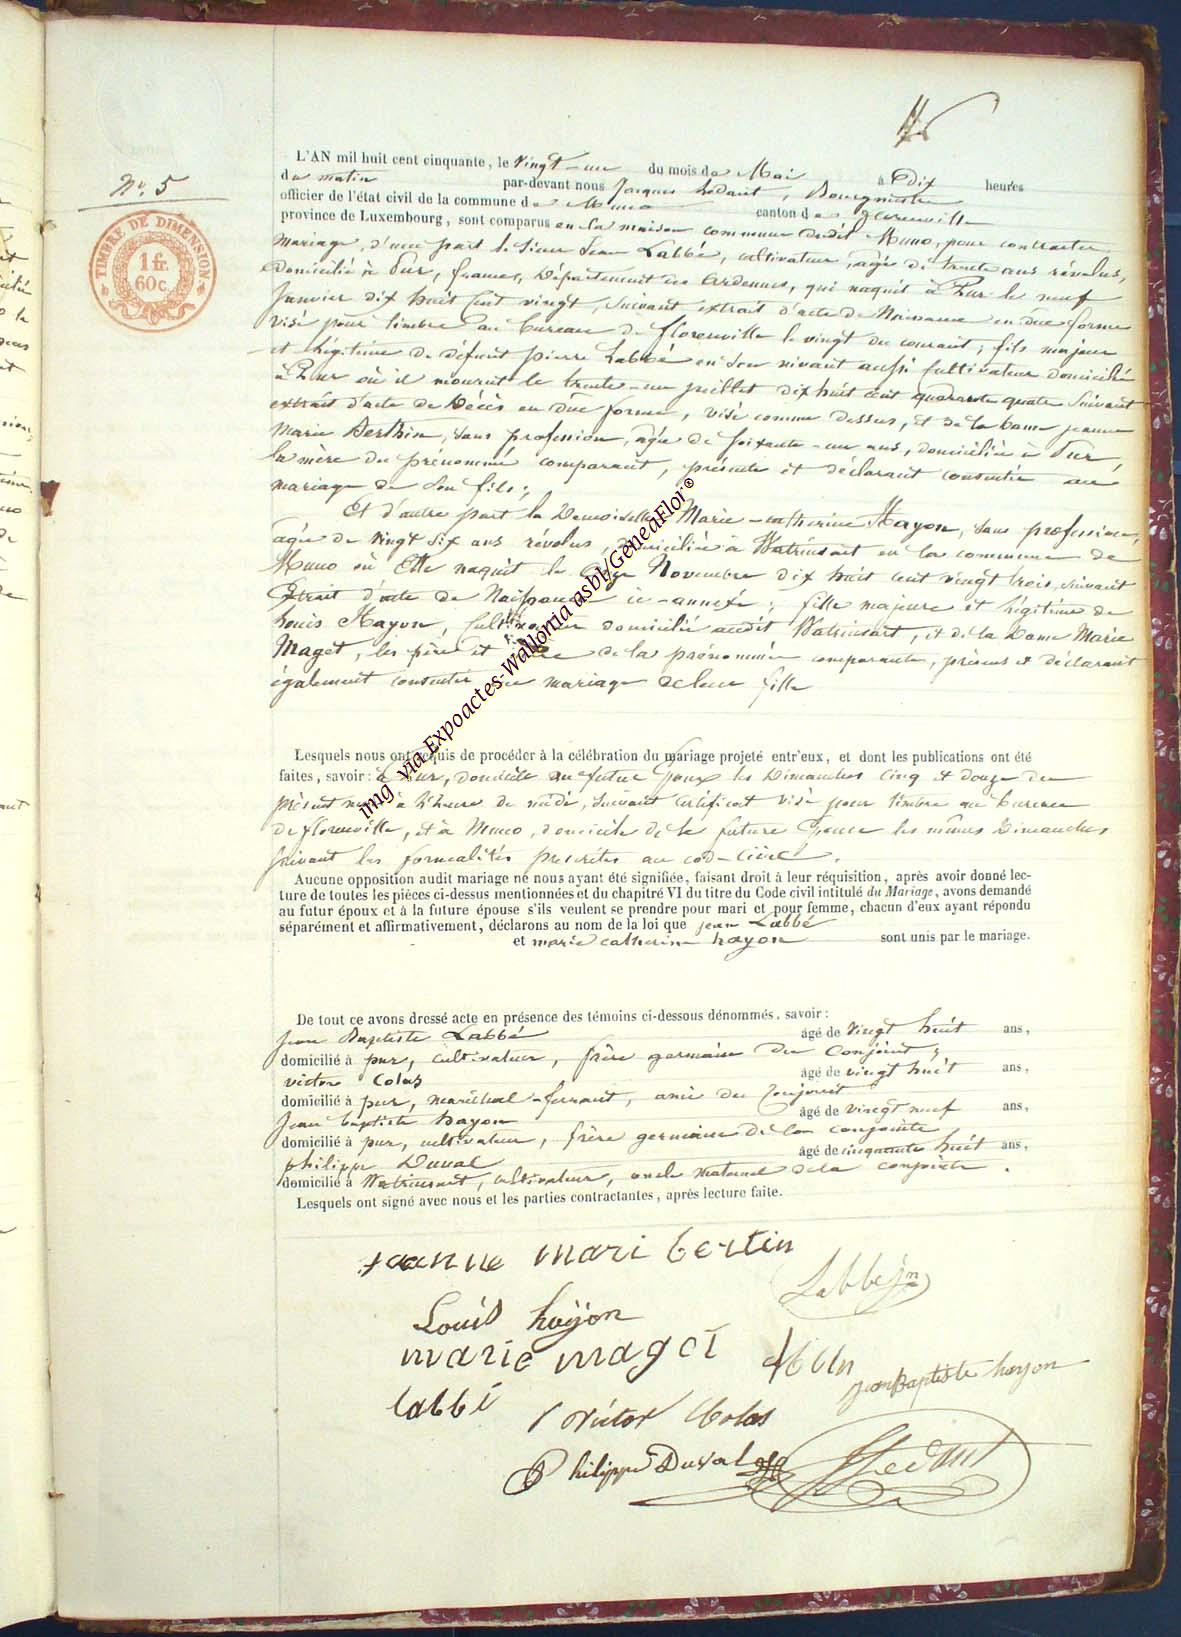 N°. 5
TIMBRE DE DIMENSION
1 fr.
60 c.
L'AN mil huit cent cinquante, le vingt-un du mois de Mai à Dix heures
du matin par-devant nous Jacques Lédant, Bourgmestre
officier de l'état civil de la commune de Muno canton de Florenville
province de Luxembourg, sont comparus en la maison commune dudit Muno, pour contracter
mariage, d'une part le Sieur Jean Labbé, cultivateur, âgé de trente ans révolus,
domicilié à Pur, france, Département des Ardennes, qui naquit à Pur le neuf
Janvier dix huit cent vingt, suivant extrait d'acte de Naissance en due forme
visé pour timbre au bureau de florenville le vingt du courant; fils majeur
et légitime de défunt pierre Labbé en son vivant aussi cultivateur domicilié
à Pur où il mourut le trente-un juillet dix huit cent quarante quatre suivant
extrait d'acte de Décès en due forme, visé comme dessus, et de la Dame jeanne
Marie Berthin, sans profession, âgée de soixante-un ans, domiciliée à Pur,
la mère du prénommé comparant, présente et déclarant consentir au
mariage de son fils;
Et d'autre part la Demoiselle Marie-catherine Hayon, sans profession,
âgée de vingt six ans révolus, domiciliée à Watrinsart en la commune de
Muno où Elle naquit le Novembre dix huit cent vingt trois, suivant
Extrait d'acte de Naissance ci-annexé; fille majeure et légitime de
Louis Hayon, cultivateur domicilié audit Watrinsart, et de la Dame Marie
Maget, les père et mère de la prénommée comparante, présens et déclarant
également consentir au mariage de leur fille
Lesquels nous ont requis de procéder à la célébration du mariage projeté entr'eux, et dont les publications ont été
faites, savoir: à Pur, domicile du futur Epoux les Dimanches cinq et douze du
présent mois à l'heure de midi, suivant certificat visé pour timbre au bureau
de florenville, et à Muno, domicile de la future Epouse les mêmes Dimanches
suivant les formalités prescrites au cod-civil.
Aucune opposition audit mariage ne nous ayant été signifiée, faisant droit à leur réquisition, après avoir donné lec-
ture de toutes les pièces ci-dessus mentionnées et du chapitre VI du titre du Code civil intitulé du Mariage, avons demandé
au futur époux et à la future épouse s'ils veulent se prendre pour mari et pour femme, chacun d'eux ayant répondu
séparément et affirmativement, déclarons au nom de la loi que jean Labbé
et marie catherine hayon sont unis par le mariage.
De tout ce avons dressé acte en présence des témoins ci-dessous dénommés, savoir:
Jean Baptiste Labbé âgé de vingt huit ans,
domicilié à pur, cultivateur, frère germain du conjoint;
victor Colas âgé de vingt huit ans,
domicilié à pur, maréchal-ferrant, ami du conjoint
Jean baptiste hayon âgé de vingt neuf ans,
domicilié à pur, cultivateur, frère germain de la conjointe
philippe Duval âgé de cinquante huit ans,
domicilié à Watrinsart, cultivateur, oncle maternel de la conjointe.
Lesquels ont signé avec nous et les parties contractantes, après lecture faite.
jeanne mari bertin
Labbé jn
Louis hayon
marie maget
jean Baptiste hayon
labbé
victor Colas
Philippe Duval
Lédant
img via Expoactes-Wallonia asbl/GeneaFloi®